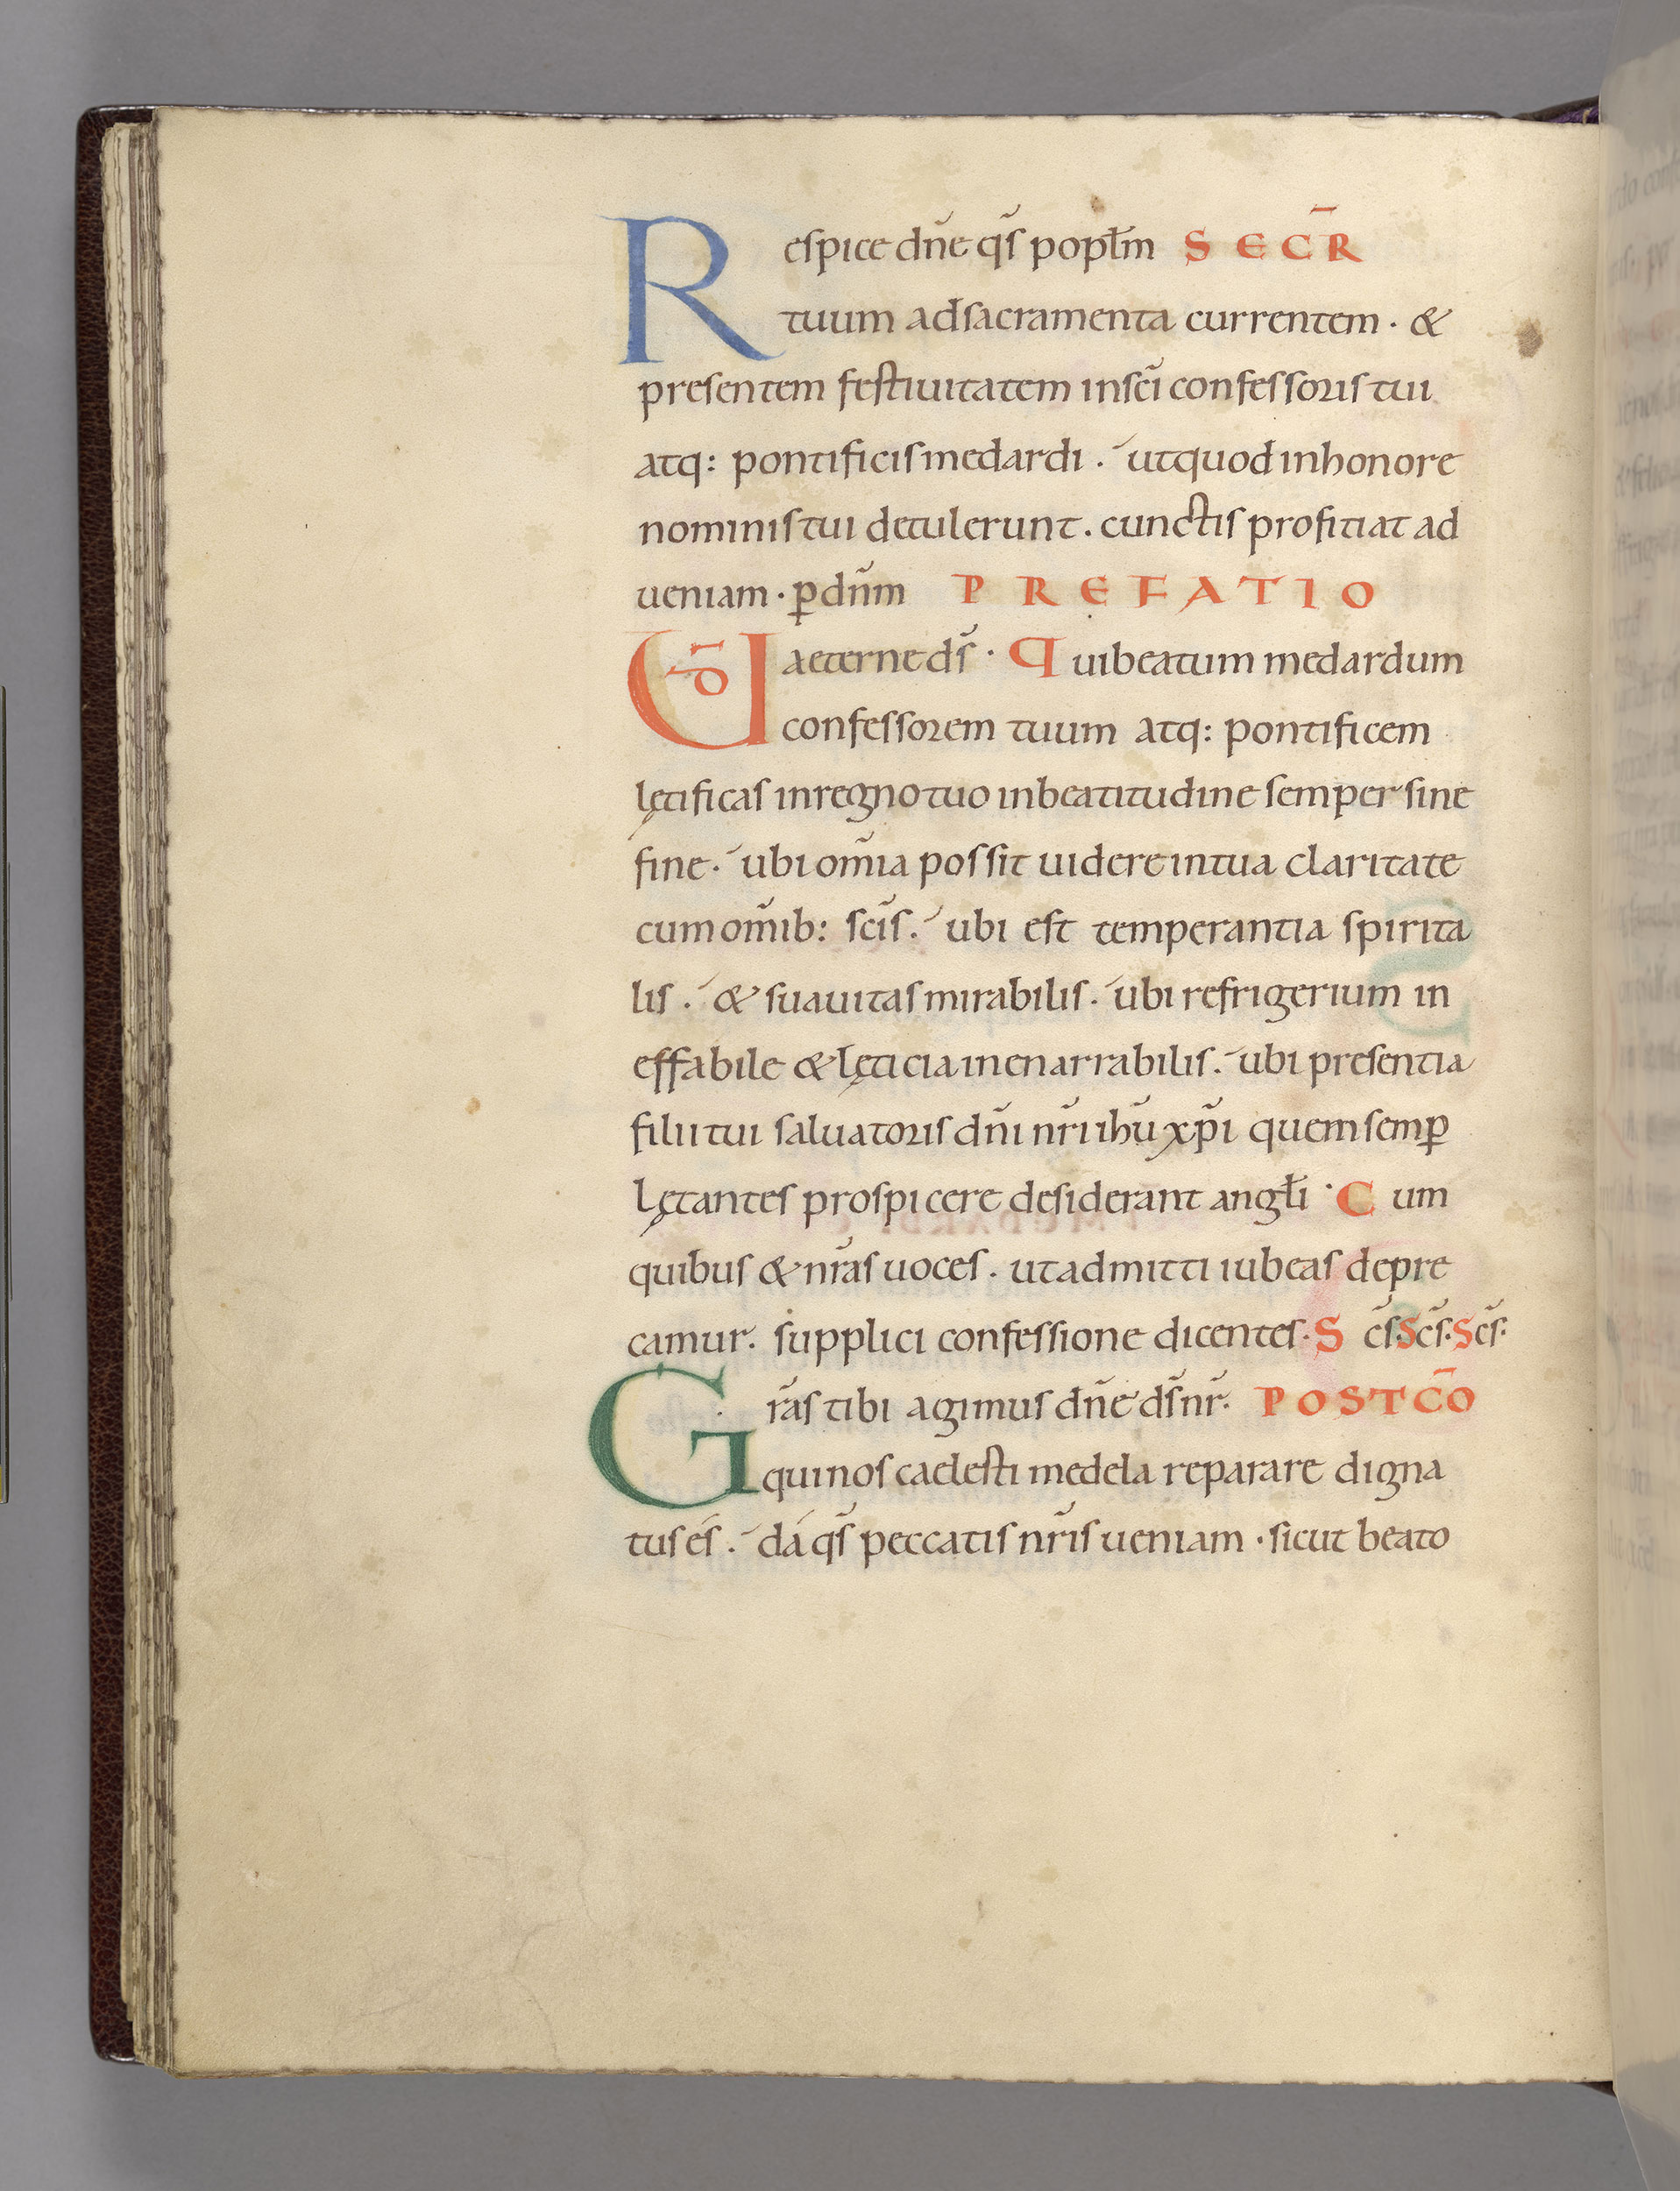 Respice dn̄e qs̄ popłm SECR̄
tuum adsacramenta currentem · &
presentem festiuitatem insc̄i confessoris tui
atq: pontificis medardi . utquod inhonore
nominis tui detulerunt . cunctis profitiat ad
ueniam · ꝑdn̄m PREFATIO
UD̄ aeterne ds̄ · Quibeatum medardum
confessorem tuum atq: pontificem
lętificas inregno tuo inbeatitudine semper sine
fine . ubi om̄ia possit uidere intua claritate
cum om̄ib: sc̄is . ubi est temperantia spirita
lis . & suauitas mirabilis . ubi refrigerium in
effabile & lęticia inenarrabilis . ubi presentia
filii tui saluatoris dn̄i nr̄i ihū xp̄i quem semꝑ
Lętantes prospicere desiderant angłi · Cum
quibus & nr̄as uoces . ut admitti iubeas depre
camur . supplici confessione dicentes · Sc̄s · Sc̄s · Sc̄s ·
Gr̄as tibi agimus dn̄e ds̄ nr̄ . POSTCO̅
quinos caelesti medela reparare digna
tus és . dá qs̄ peccatis nr̄is ueniam · sicut beato